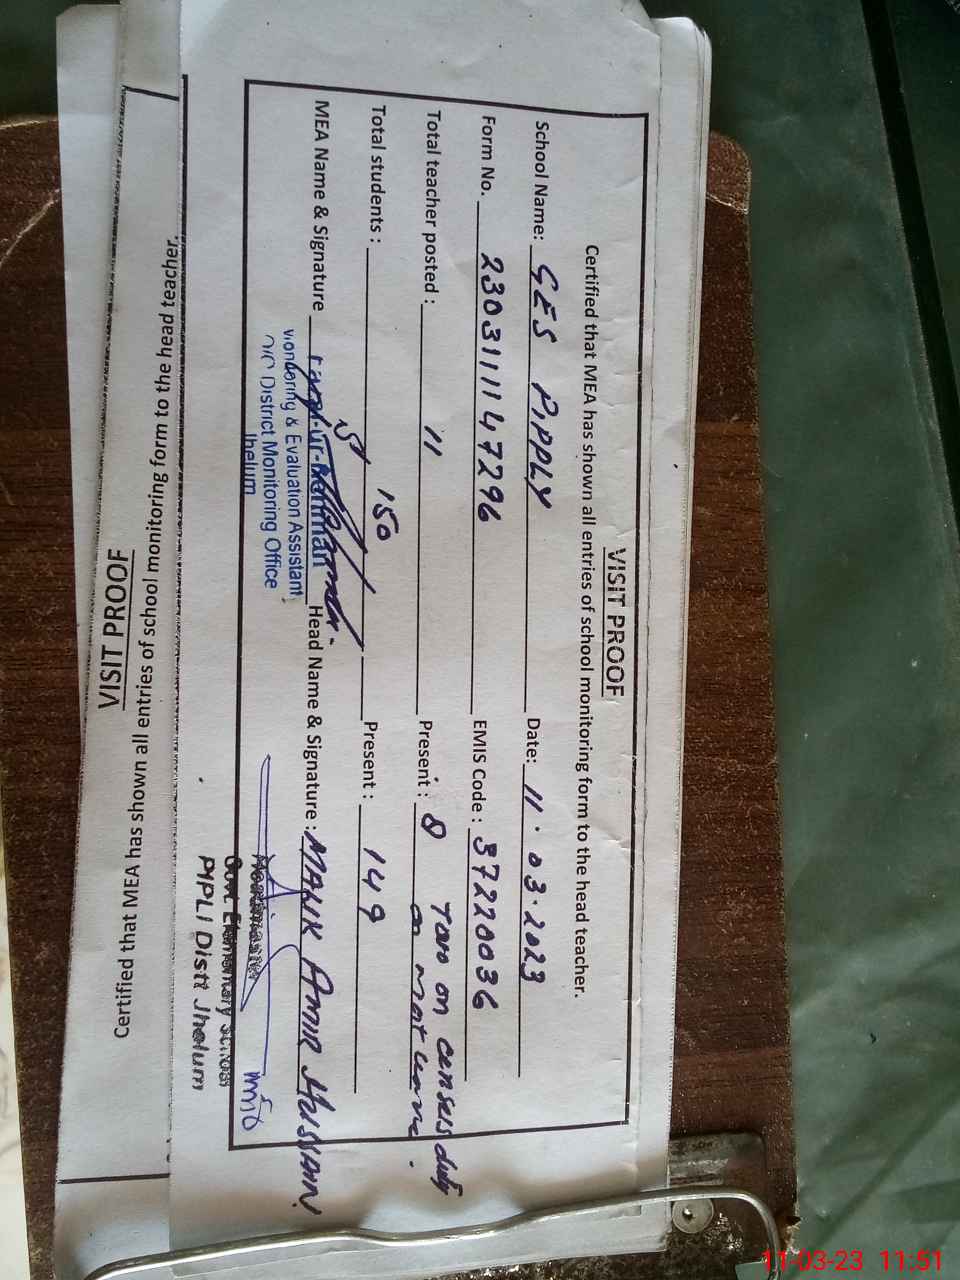 VISIT PROOF
Certified that MEA has shown all entries of school monitoring form to the head teacher.
School Name: GES PIPPLY Date: 11.03.2023
Form No. 23031111 47296 EMIS Code : 37220036
Total teacher posted : 11 Present : 8 Two on census duty
on mat leave.
Total students : 150 Present : 149
MEA Name & Signature Head Name & Signature : MALIK AMIR HUSSAIN
& Evaluation Assistant
District Monitoring Office
Jhelum
Headmaster
Govt. Elementary School
PIPLI Distt Jhelum
VISIT PROOF
Certified that MEA has shown all entries of school monitoring form to the head teacher.
11-03-23 11:51